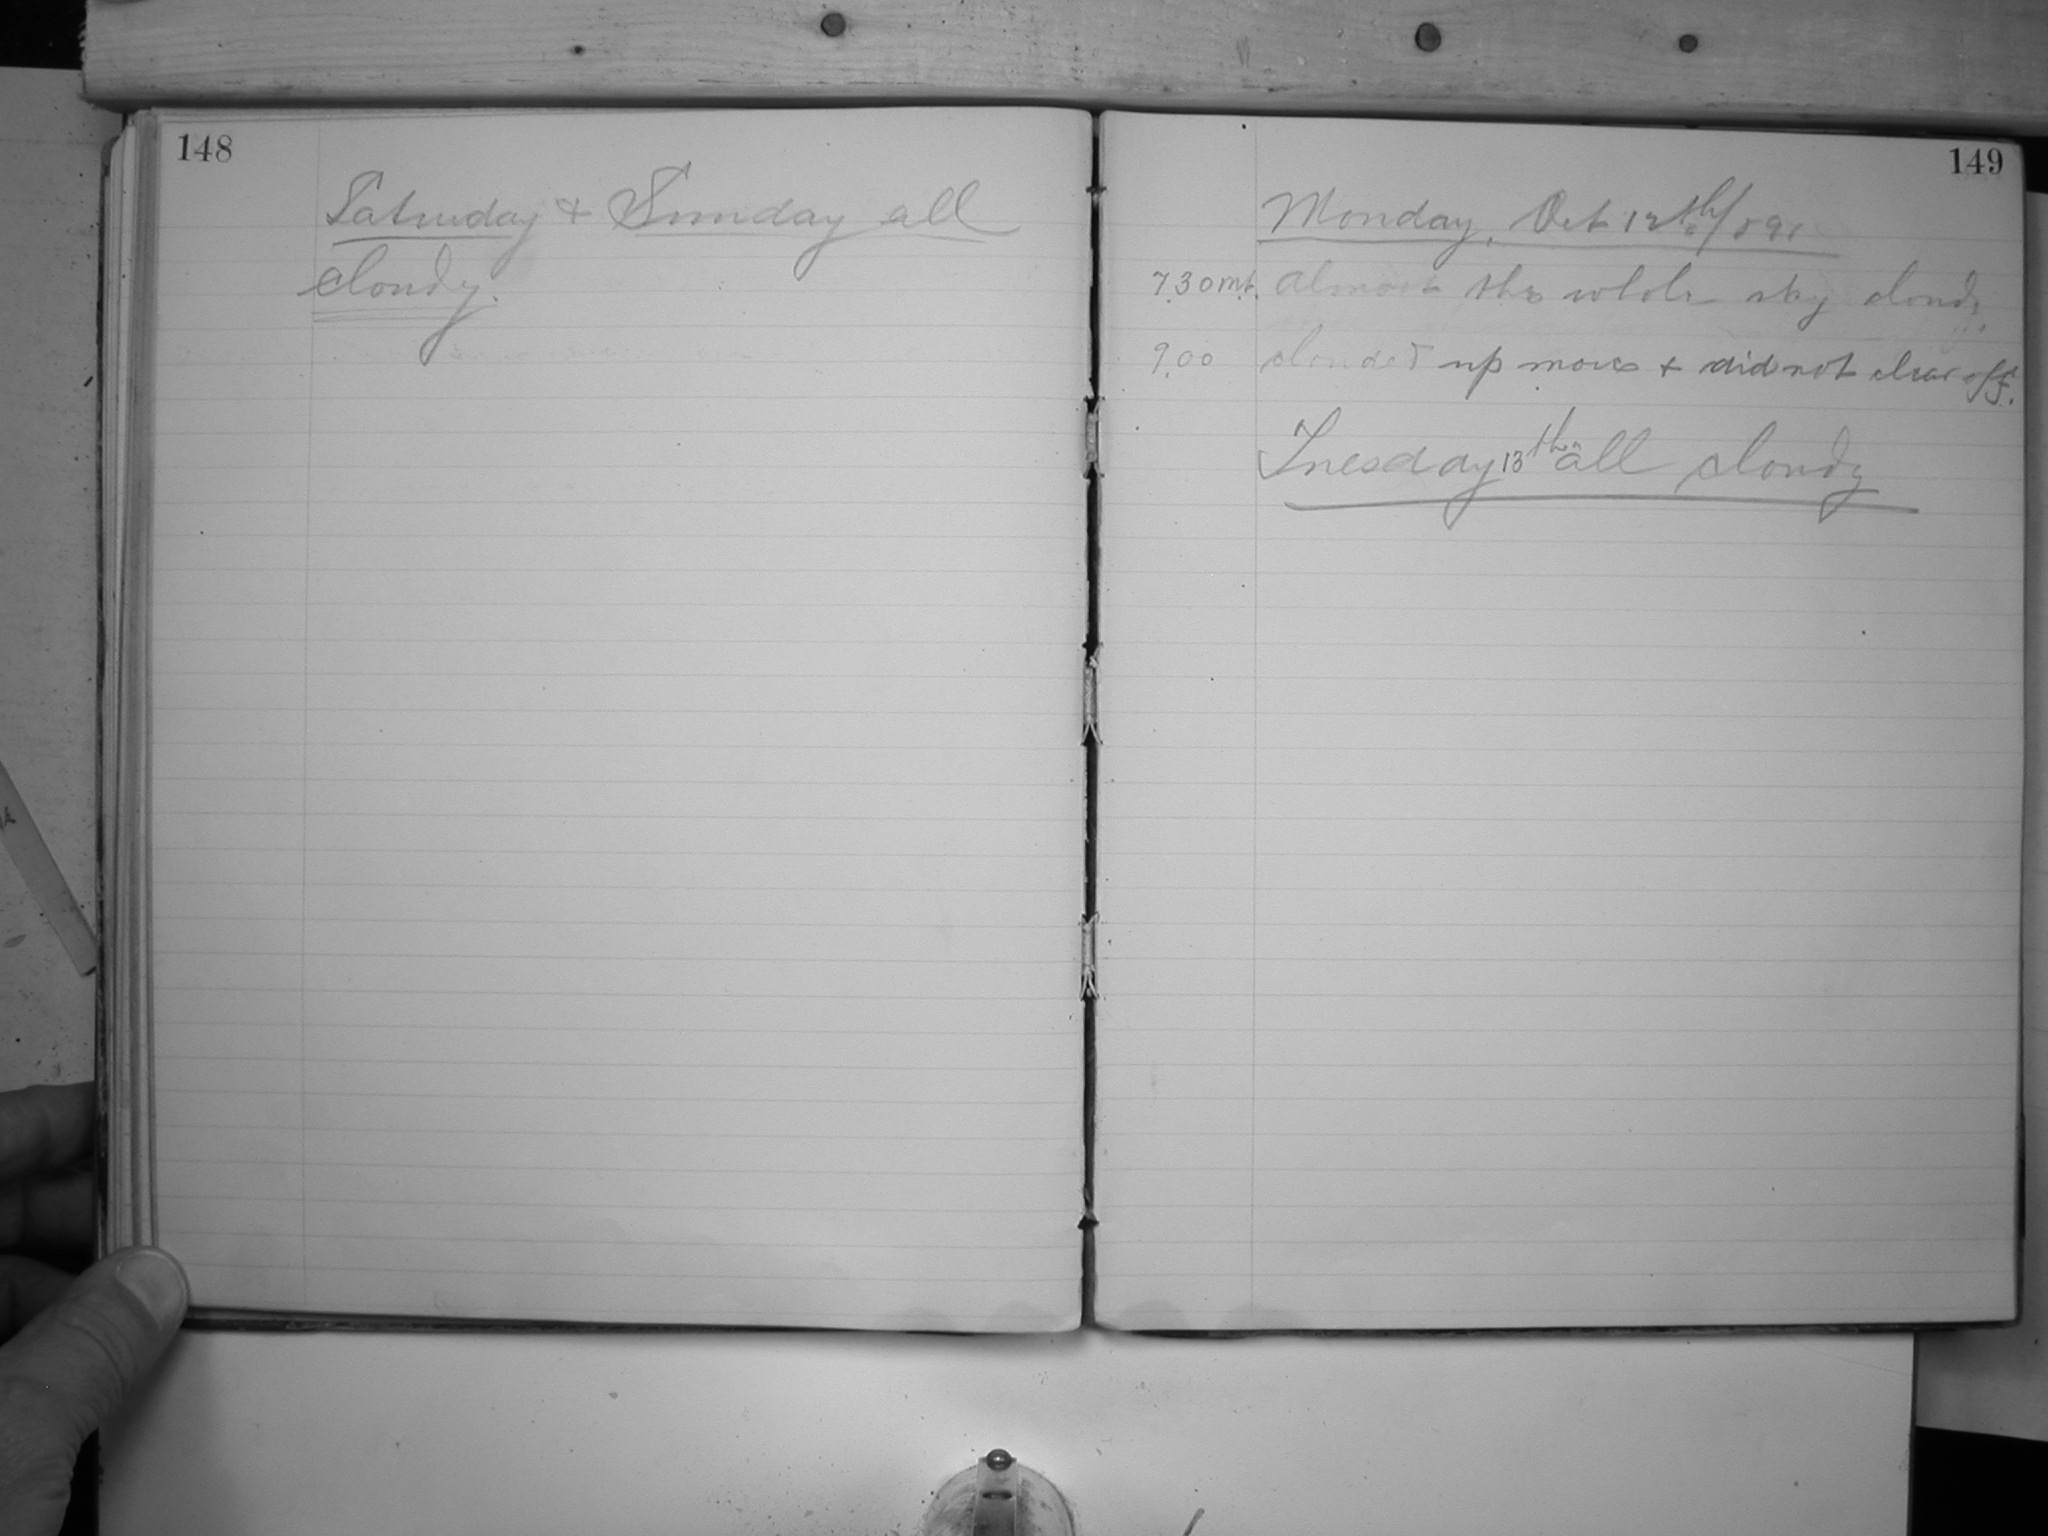 148
Saturday & Sunday all
cloudy.
149
Monday, Oct 12th/891
7.30 m.t. Almost the whole sky cloudy.
9.00 clouded up more & did not clear off.
Tuesday 13th all cloudy